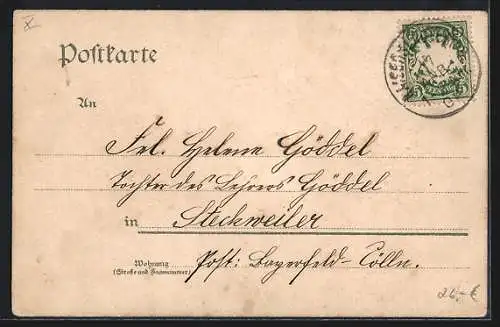 x
Postkarte
An
Frl. Helene Göddel
Tochter des Lehrers Göddel
in Steckweiler
Wohnung
(Straße und Hausnummer)
Post: Bayerfeld-Cölln.
26,- €
5 5